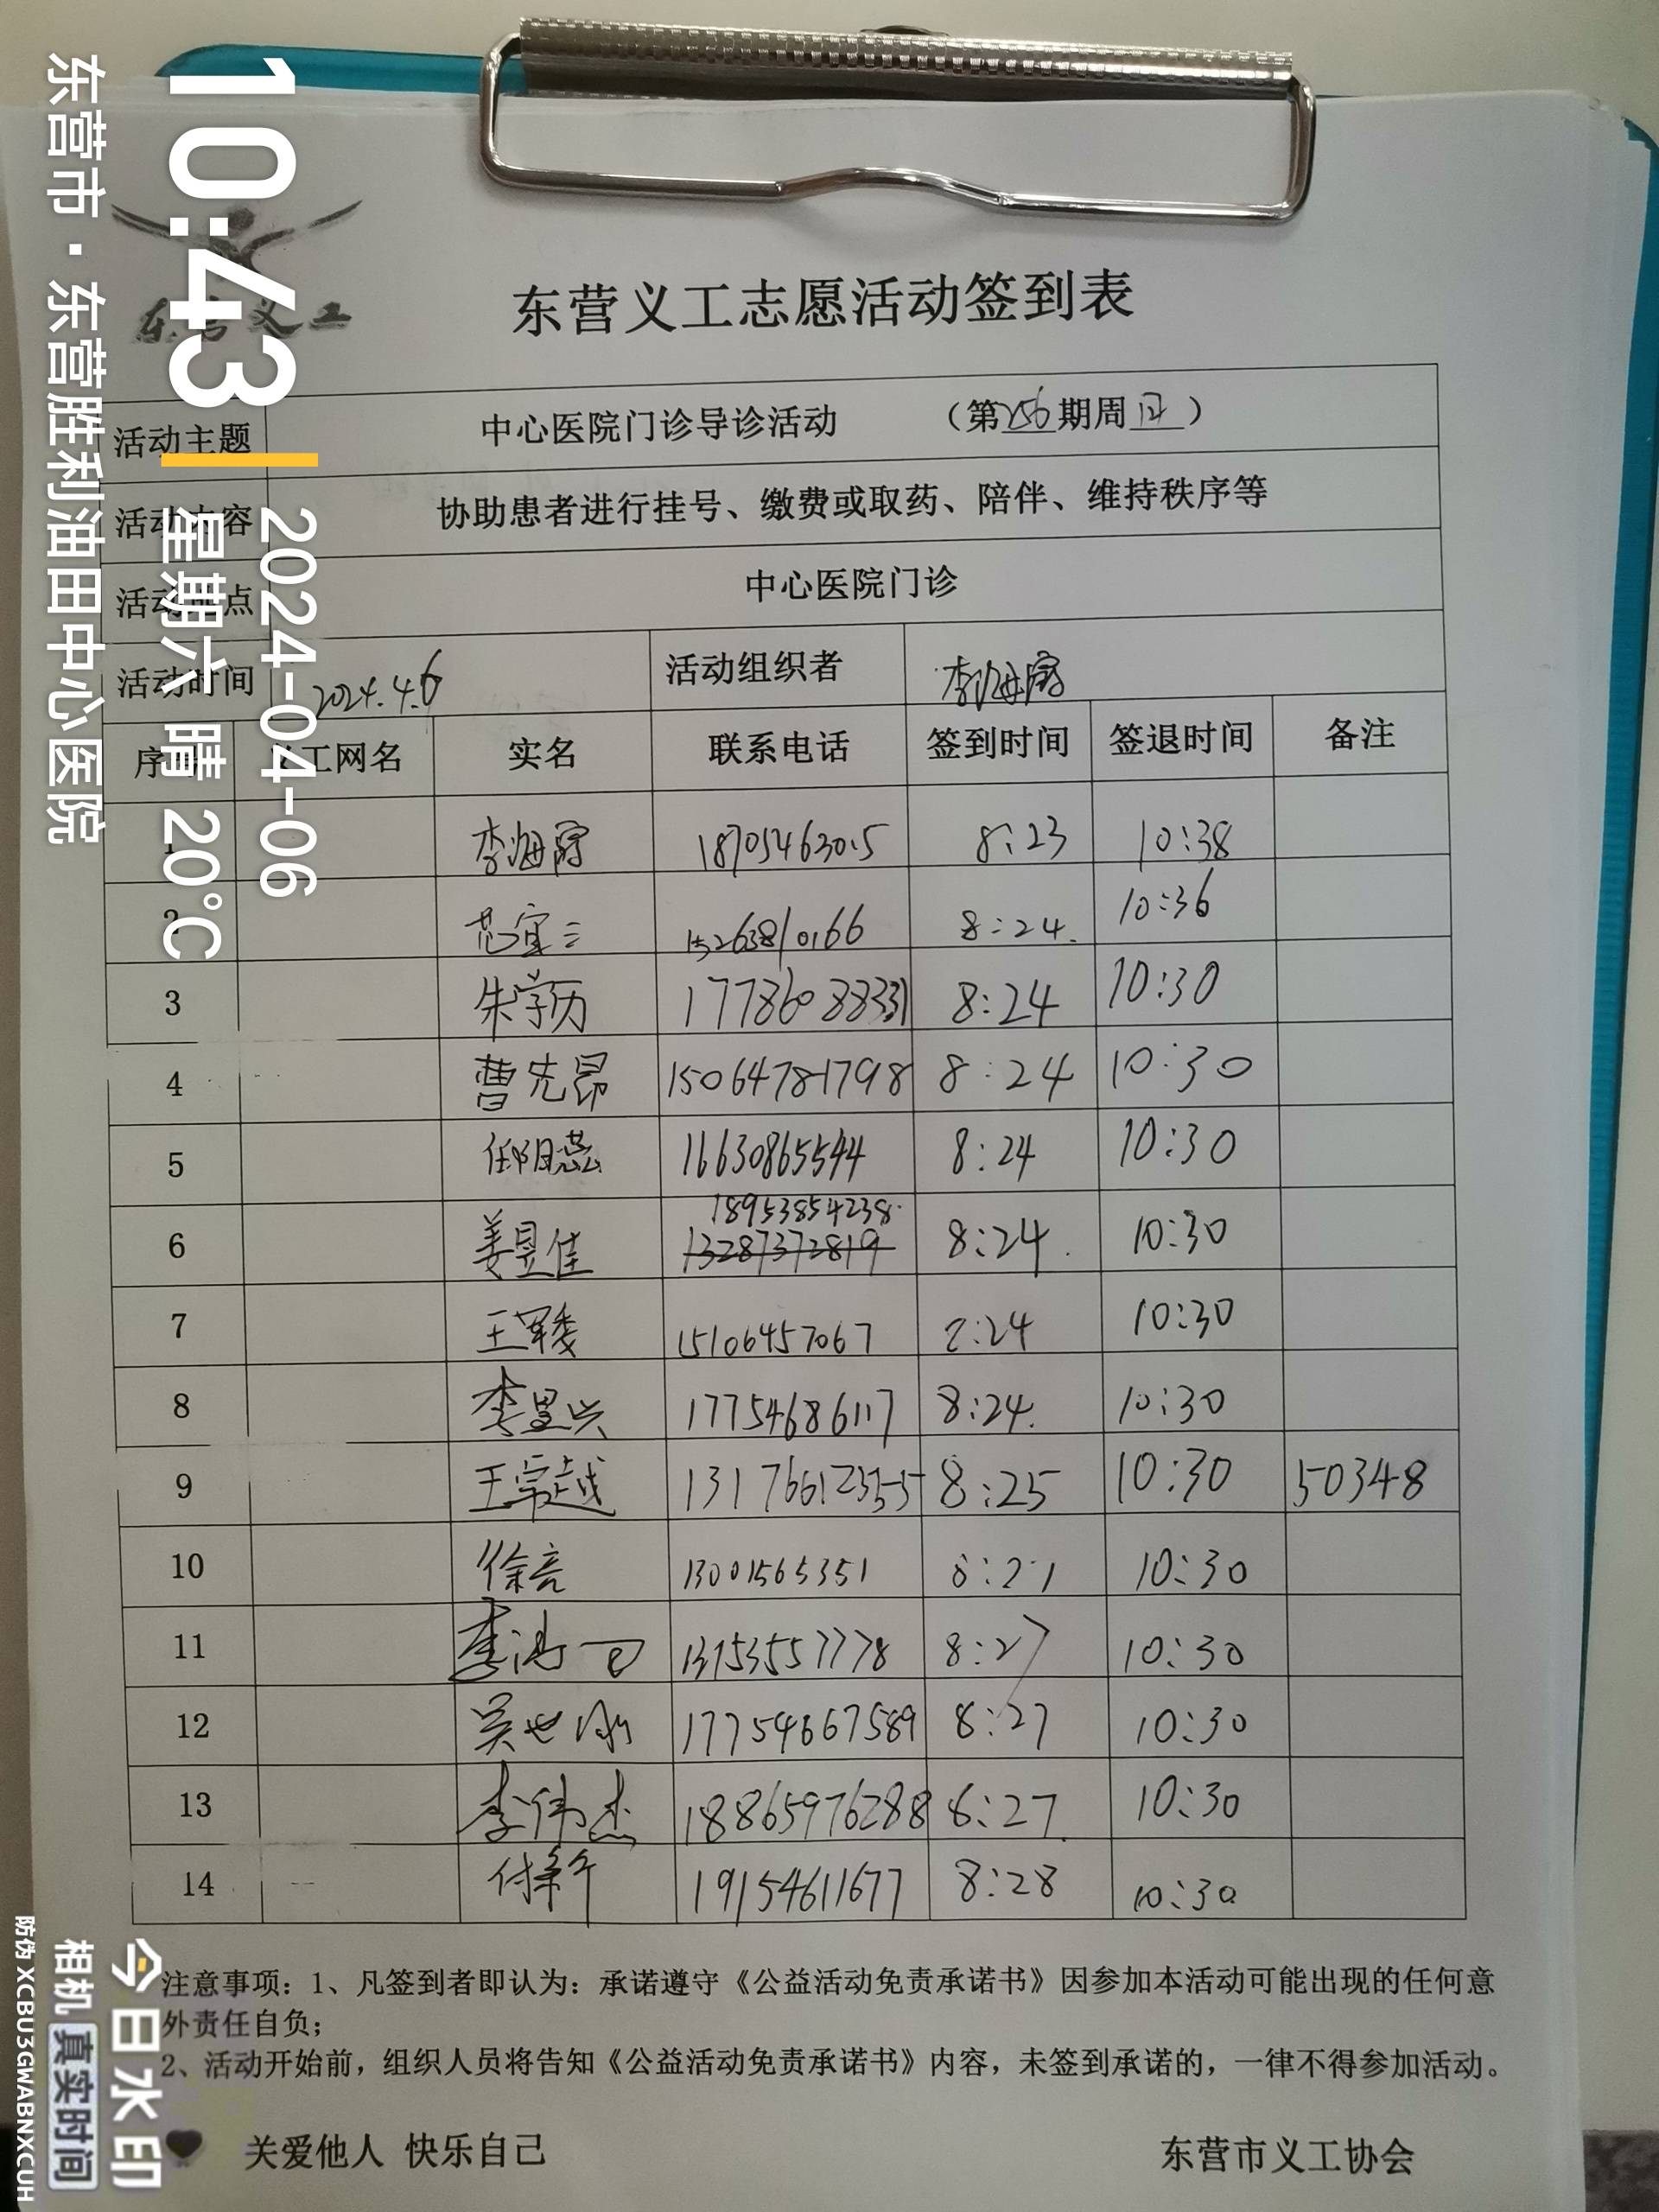 10:43
2024-04-06
星期六 晴 20°C
东营市·东营胜利油田中心医院
东营义工
东营义工志愿活动签到表
活动主题 中心医院门诊导诊活动 (第256期周)
活动内容 协助患者进行挂号、缴费或取药、陪伴、维持秩序等
活动地点 中心医院门诊
活动时间 2024.4.6 活动组织者 李海
序 工网名 实名 联系电话 签到时间 签退时间 备注
李海 18705463015 8:23 10:38
2 范宜三 15263810166 8:24. 10:36
3 朱学历 17786088331 8:24 10:30
4 曹先昂 15064781798 8:24 10:30
5 16630865544 8:24 10:30
18953854238
6 姜昱佳 13287372819 8:24. 10:30
7 王 15106457067 8:24 10:30
8 李 17754686117 8:24. 10:30
9 王宗越 13176612355 8:25 10:30 50348
10 徐 13001565351 8:27 10:30
11 李 8:27 10:30
12 吴世 17754667589 8:27 10:30
13 李伟杰 18865976288 8:27 10:30
14 付 19154611677 8:28 10:30
注意事项：1、凡签到者即认为：承诺遵守《公益活动免责承诺书》因参加本活动可能出现的任何意
外责任自负；
2、活动开始前，组织人员将告知《公益活动免责承诺书》内容，未签到承诺的，一律不得参加活动。
关爱他人 快乐自己 东营市义工协会
今日水印
相机 真实时间
防伪 XCBU3GWABNXCUH